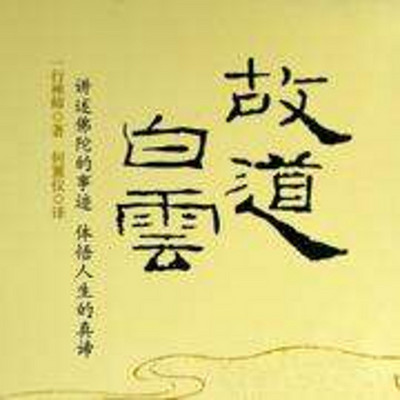 故道
白雲
讲述佛陀的事迹 体悟人生的真谛
一行禅师◎著 何蕙仪◎译